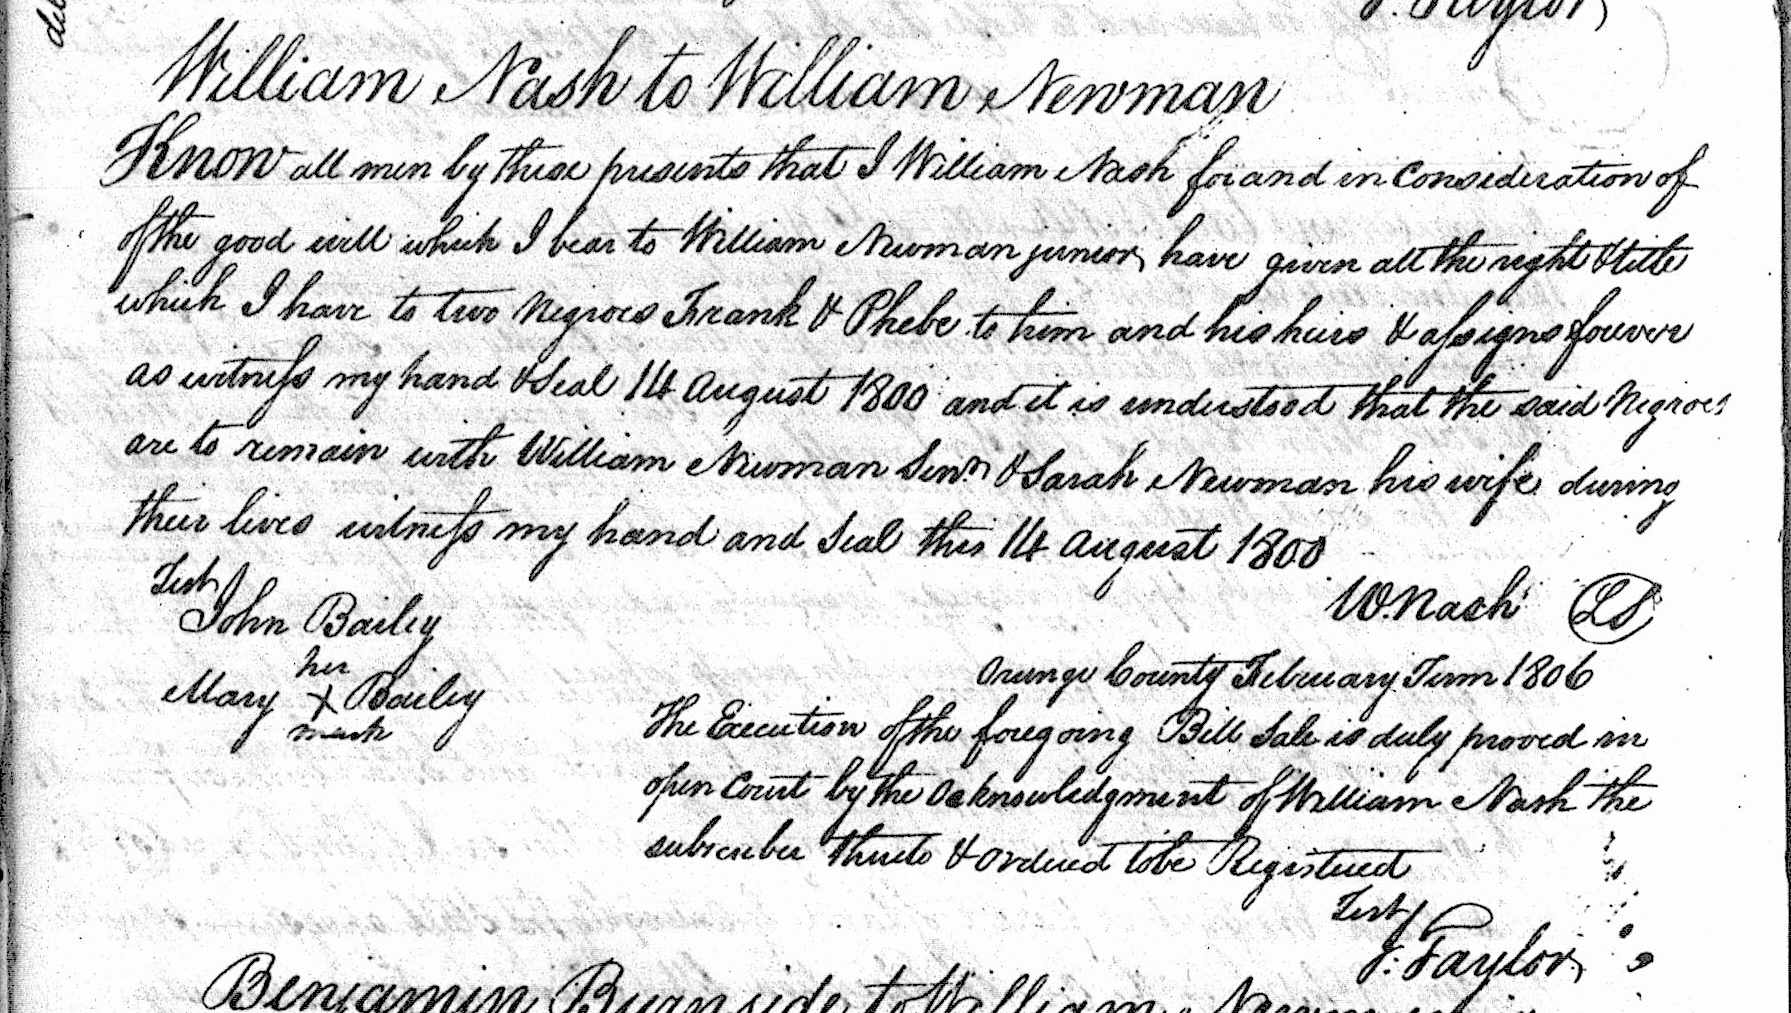 J. Taylor
William Nash to William Newman
Know all men by these presents that I William Nash for and in Consideration of
of the good will which I bear to William Newman junior, have given all the right & title
which I have to two Negroes Frank & Phebe to him and his heirs & assigns forever
as witness my hand & Seal 14 August 1800 and it is understood that the said Negroes
are to remain with William Newman Senr. & Sarah Newman his wife during
their lives witness my hand and Seal this 14 August 1800
Test
W. Nash LS
John Bailey
her
Mary X Bailey
mark
Orange County February Term 1806
The Execution of the foregoing Bill Sale is duly proved in
open Court by the acknowledgment of William Nash the
subscriber thereto & ordered to be Registered
Test
J. Taylor
Benjamin Burnside to William